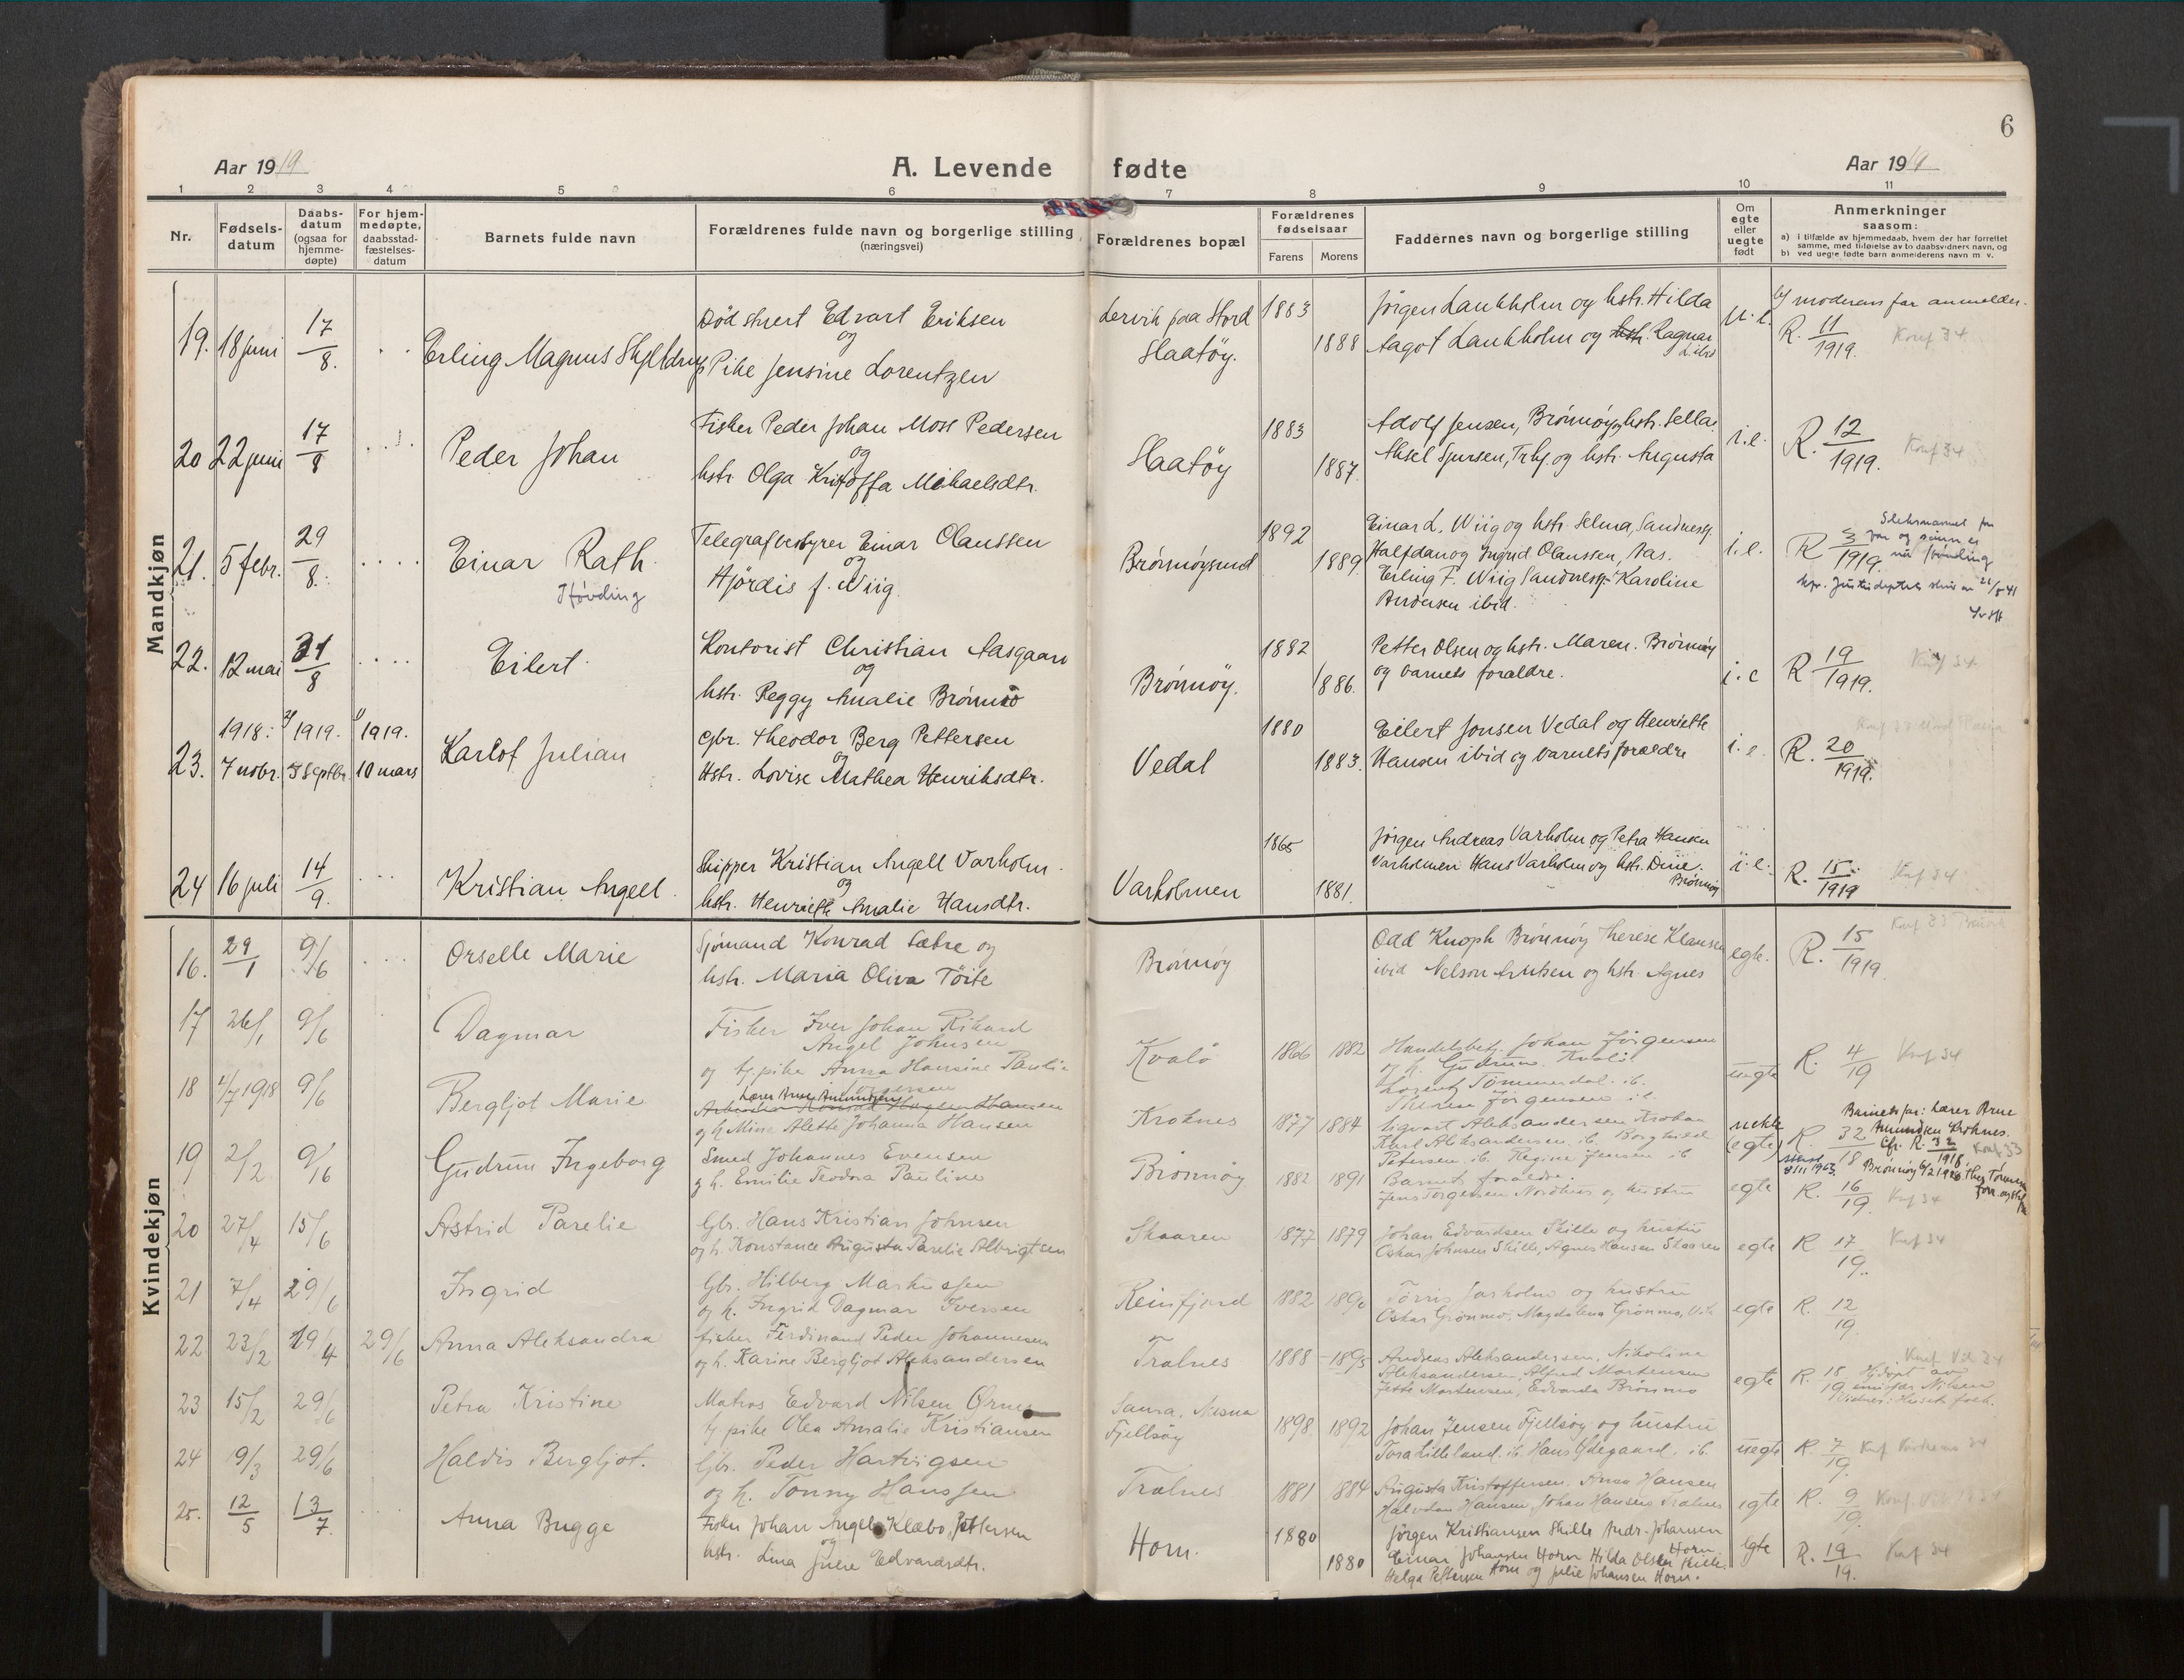 6
Aar 1919
A. Levende fødte
Aar 1919
1 2 3 4 5 6 7 8 9 10 11
Nr.
Fødsels-
datum
Daabs-
datum
(ogsaa for
hjemme-
døpte)
For hjem-
medøpte,
daabsstad-
fæstelses-
datum
Barnets fulde navn
Forældrenes fulde navn og borgerlige stilling
(næringsvei)
Forældrenes bopæl
Forældrenes
fødselsaar
Farens Morens
Faddernes navn og borgerlige stilling
Om
egte
eller
uegte
født
Anmerkninger
saasom:
a) i tilfælde av hjemmedaab, hvem der har forrettet
samme, med tilføielse av to daabsvidners navn, og
b) ved uegte fødte barn anmelderens navn m. v.
Mandkjøn
19. 18 juni 17/8. Erling Magnus
Edvart Eriksen
og
Pike Jensine Lorentzen
Lervik paa Stord
Slaatøy.
1883 1888
Jørgen Laukholm og hstr. Hilda
Aagot Laukholm og hstr. Ragnar
u.e.
b/ moderens far anmelder.
R. 11/1919. Konf 34
20 22 juni 17/8 Peder Johan
Fisker Peder Johan Moss Pedersen
og
hstr. Olga Michaelsdtr.
Slaatøy
1883 1887.
Adolf Jensen, Brønnøy, hstr. Sella.
Aksel Sjursen, og hstr. Augusta
i.e.
R. 12/1919. Konf 34
21. 5 febr. 29/8. Einar Rath
Høvding
Telegrafbestyrer Einar Olaussen
og
Hjördis f. Wiig.
Brønnøysund
1892 1889.
Einar L. Wiig og hstr. Selma, Sandnessj.
Halfdan og Ingrid Olaussen,
Erling F. Wiig Sandnessj. Karoline
Andersen ibid.
i.e.
R 3/1919.
Slektsnavnet for
far og sønn er
nu Høvding
22. 12 mai 31/8 Eilert
Kontorist Christian Aasgaard
og
hstr. Peggy Amalie Brønmo
Brønnøy.
1882 1886.
Petter Olsen og hstr. Maren. Brønnøy
og barnets forældre.
i.e
R 19/1919. Konf 34
23. 1918: 7 nobr. 1919. Septbr. 1919. 10 mars Karlof Julian
Gbr. Theodor Berg Pettersen
og
Hstr. Lovise Mathea Henriksdtr.
Vedal
1880 1883.
Eilert Jonsen Vedal og Henriette
Hansen ibid og barnets forældre
i.e.
R. 20/1919.
24 16 juli 14/9. Kristian Angell.
Skipper Kristian Angell Varholm.
og
hstr. Henriette Amalie Hansdtr.
Varholmen
1865 1881.
Jørgen Andreas Varholm og Petra Hansen
Varholmen Hans Varholm og hstr. Dine.
Brønnøy
i.e.
R. 15/1919 Konf 34
Kvindekjøn
16. 29/1 9/6 Orselle Marie
Sjømand Konrad Sætre og
hstr. Maria Oliva Töite
Brønnøy
Odd Knoph Brønnøy Therese Klausen
ibid Nelson Arntsen og hstr. Agnes
egte.
R. 15/1919.
17 26/1 9/6 Dagmar
Fisker Iver Johan Rikard
Angel Johnsen
og pike Anna Hansine Paulin
Kvalø 1866 1882
Handelsbetj. Johan Jörgensen
og h. Gudrun. Kvalø.
Lorentz Tömmerdal. ib.
Therese Jörgensen ib.
uegte
R. 4/19 Konf 34
18 4/7 1918 9/6 Bergljot Marie
Lærer Arne Amundsen
og h. Mina Alette Johanna Hansen
Kroknes 1877 1884
Sigvart Aleksandersen
Karl Aleksandersen. ib. Borghild
Petersen. ib. Regine Jensen ib
uekte
(egte)
R. 32/18
Barnets far: Lærer Arne
Amundsen Kroknes.
Cfr. R. 32/1918.
19 2/2 9/16 Gudrun Ingeborg
Smed Johannes Evensen
og h. Emilie Teodora Pauline
Brönnöy 1882 1891
Barnets forældre.
Jens Torgersen Nordhus og hustru
egte
R. 16/19. Konf 34
20 27/4 15/6 Astrid Parelie
Gbr. Hans Kristian Johnsen
og h. Konstance Augusta Parelie Albrigtsen
Skaaren 1877 1879
Johan Edvardsen Skille og hustru
Oskar Johnsen Skille, Agnes Hansen Skaaren
egte
R 17/19. Konf 34
21 7/4 29/6 Ingrid
Gbr. Hilberg Markussen
og h. Ingrid Dagmar Iversen
Reinfjord 1882 1890
Törris Sarholm og hustru
Oskar Grönmo, Magdalena Grönmo,
egte
R. 12/19.
22 23/2 19/4 29/6 Anna Aleksandra
fisker Ferdinand Peder Johannesen
og h. Karine Bergljot Aleksandersen
Trælnes 1888 1895
Andreas Aleksandersen, Nikolina
Aleksandersen, Alfred Mortensen
Jette Mortensen, Edvarda Brönmo
egte
R. 18/19
Hjdøpt av
Nilsen
23 15/2 29/6 Petra Kristine
Matros Edvard Nilsen Ørnes
pike Olea Amalie Kristiansen
Saura, Nesna
Fjellsöy
1898 1892
Johan Jensen Fjellsöy og hustru
Tora Lilleland. ib. Hans Ödegaard. ib.
uegte
R. 7/19.
24 9/3 29/6 Haldis Bergljot.
Gbr. Peder Hartvigsen
og h. Tonny Hanssen
Trælnes 1881 1884
Augusta Kristoffersen. Anna Hansen
Halvdan Hansen Johan Hansens Trælnes
egte
R. 9/19.
25. 12/5 13/7. Anna Bugge
Fisker Johan Angel Klæbo Pettersen
og
hstr. Lina Julie Edvardsdtr.
Horn.
1880 1880
Jørgen Kristiansen Skille Andr. Johansen
Horn
Einar Johansen Horn Hilda Olsen Skille.
Helga Pettersen Horn og Julie Johansen Horn.
egte
R. 19/19. Konf 34